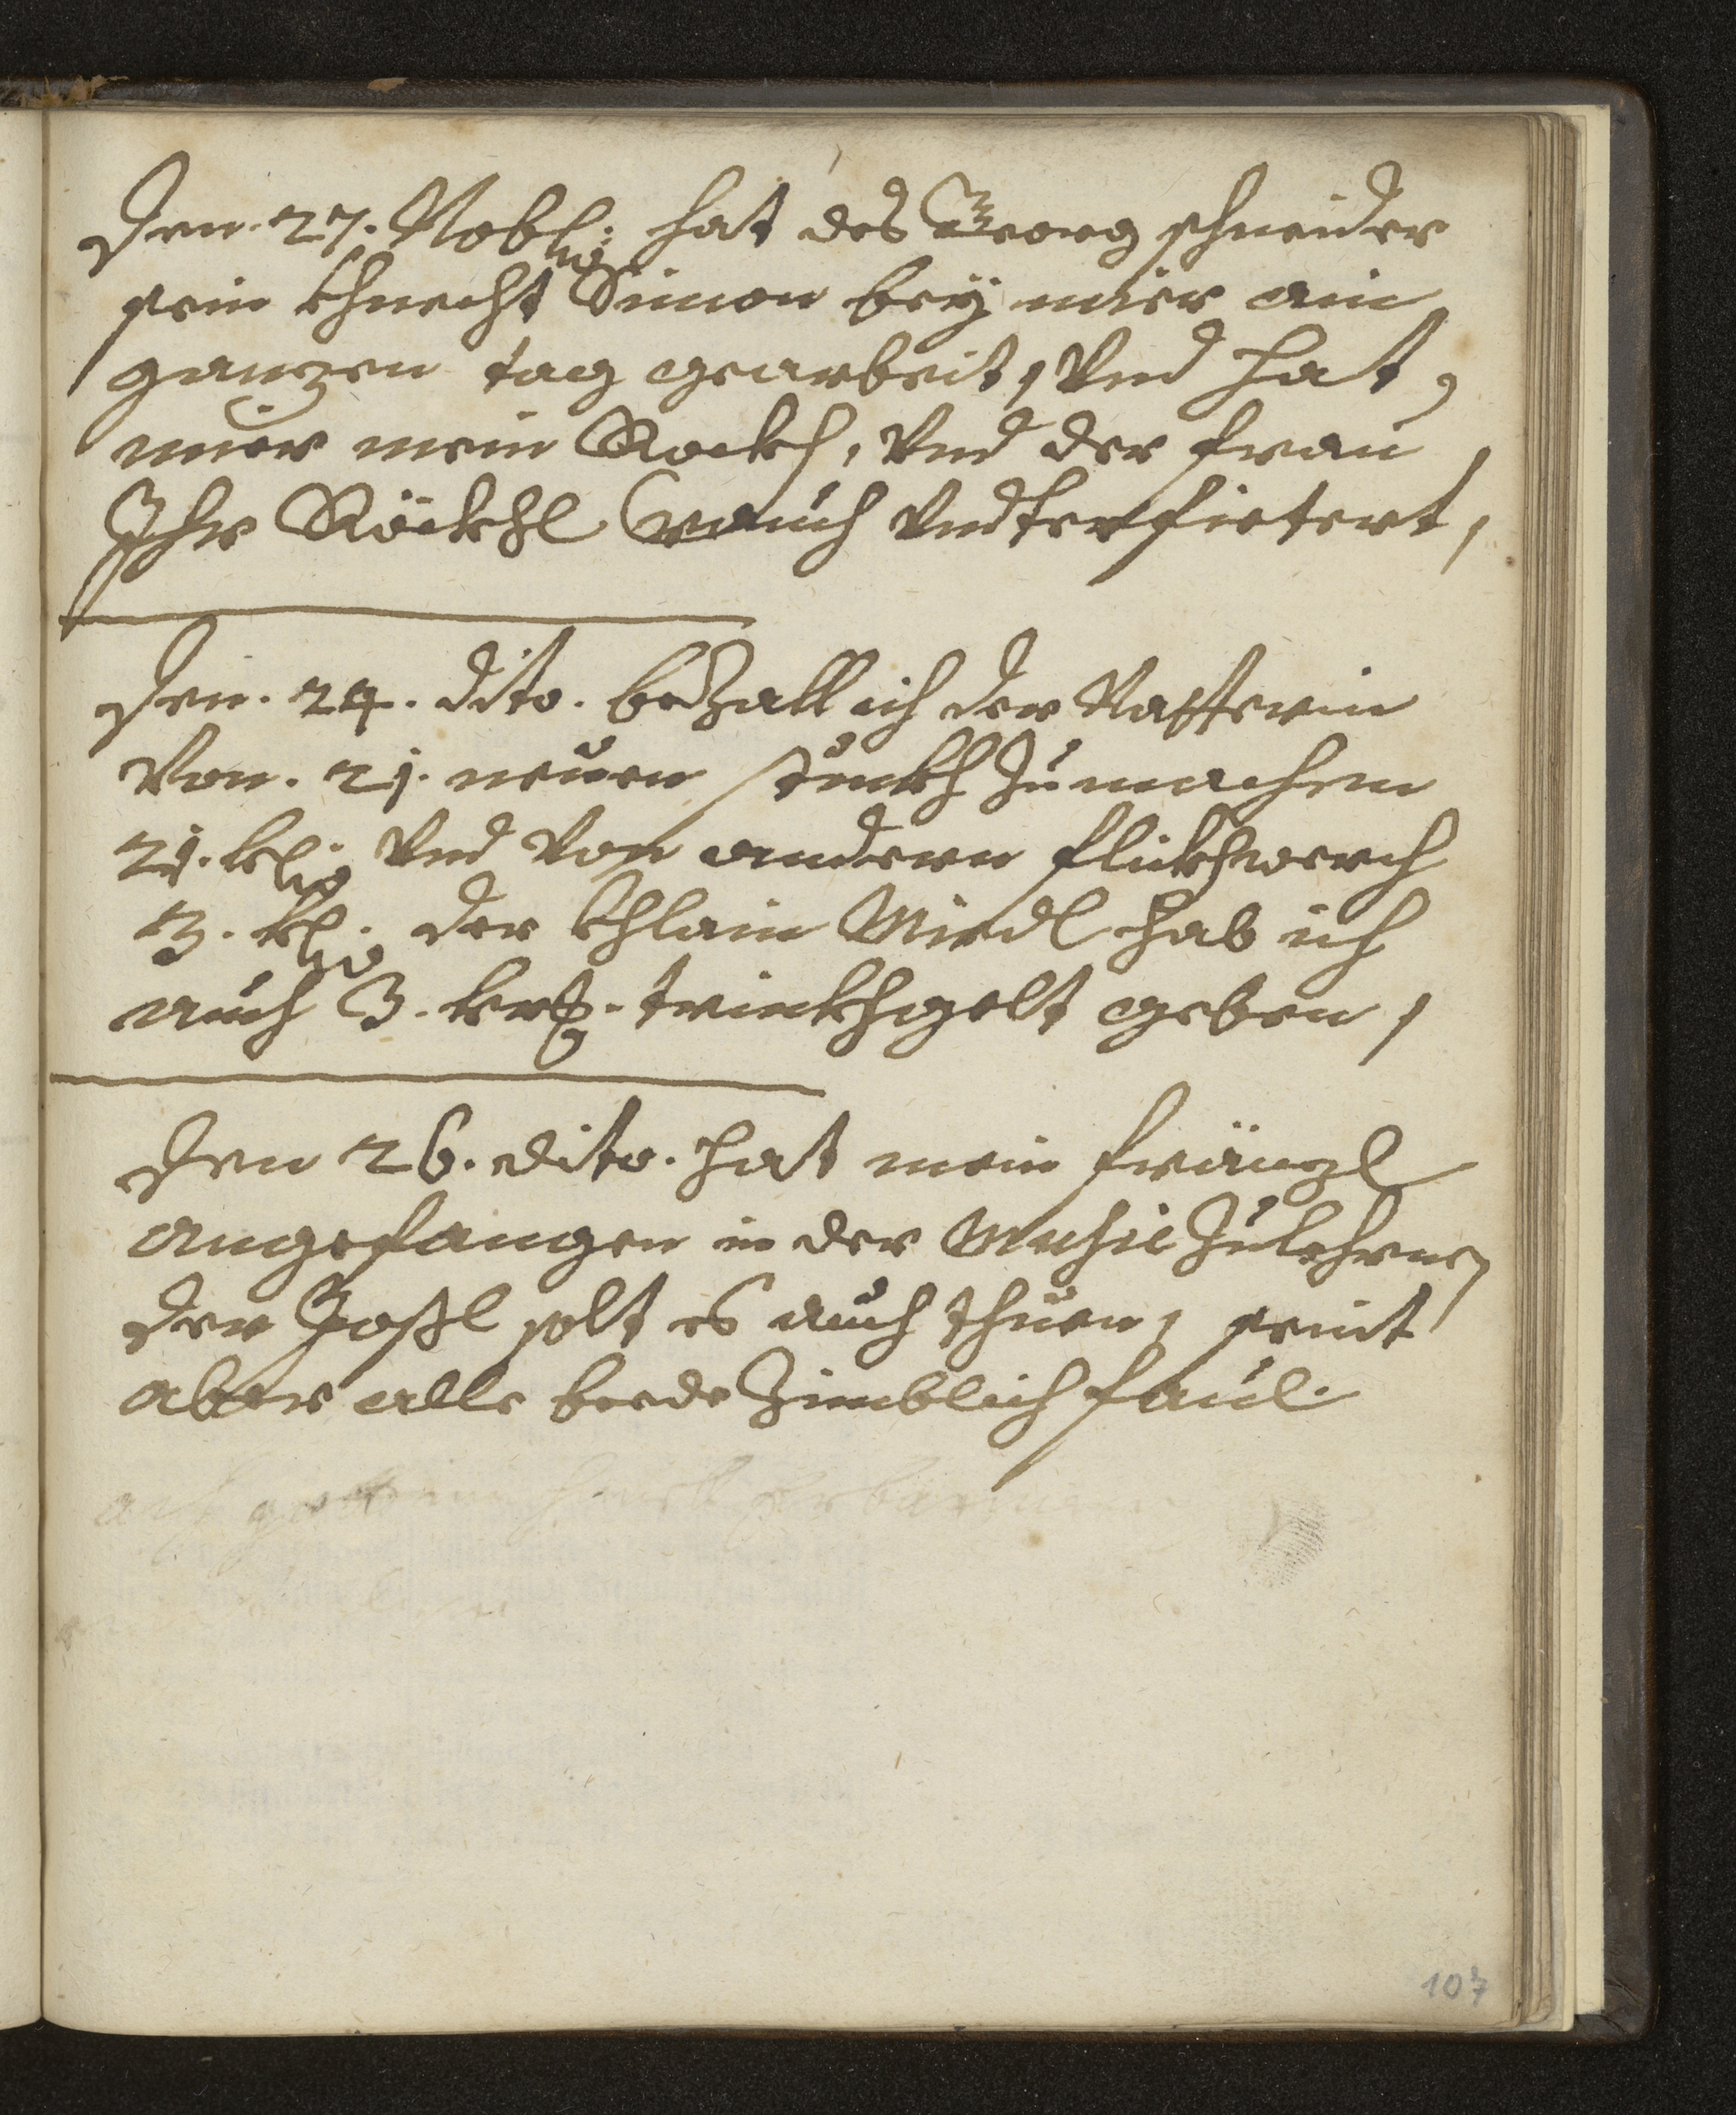 Den. 27. Nobl: hat des Georg schneider
sein khnecht Simon beÿ mier ain
ganzen tag gearbeit, Vnd hat,
mier mein Rockh, Vnd der frau
Ihr Röckhl auch Vndterfietert,
Den. 24. dito. bezall ich der Natterin
Von. 21. neuen stuckh zumachen
21. kl: Vnd Von andern flickhwerch
3. kl: der khlain Miedl hab ich
auch 3. krß. trinckhgelt geben,
Den 26. dito. hat mein fränzl
angefangen in der Music zulehrne,
der Joßl solt es auch thuen, seint
aber alle beede Zimblich faul.
107